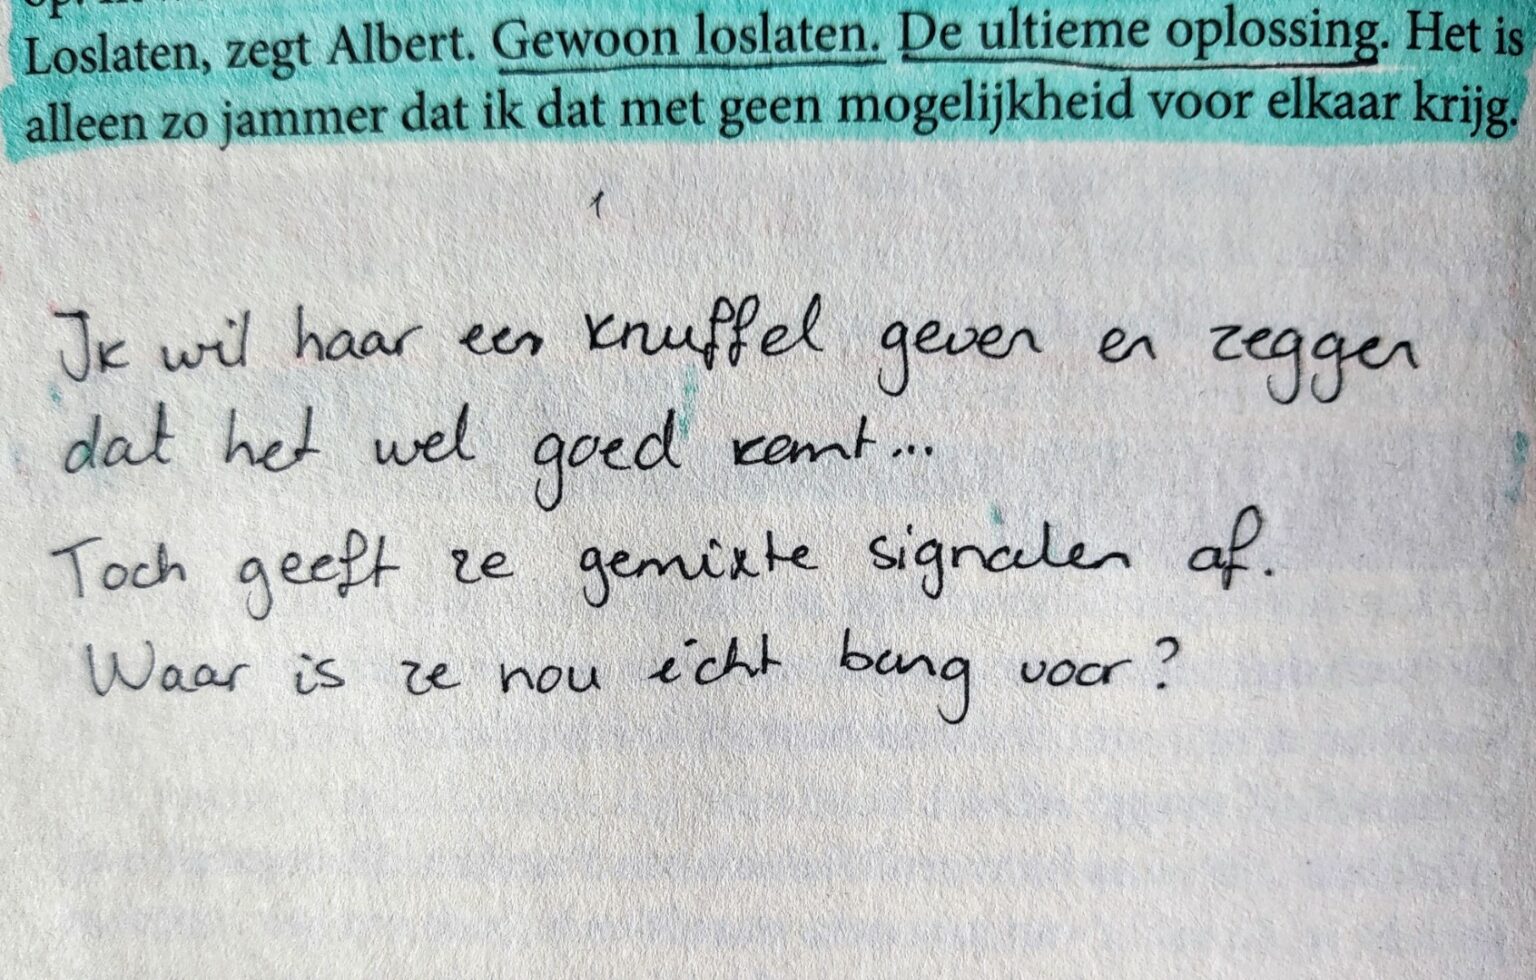 Loslaten, zegt Albert. Gewoon loslaten. De ultieme oplossing. Het is
alleen zo jammer dat ik dat met geen mogelijkheid voor elkaar krijg.
Ik wil haar een knuffel geven en zeggen
dat het wel goed komt...
Toch geeft ze gemixte signalen af.
Waar is ze nou écht bang voor?